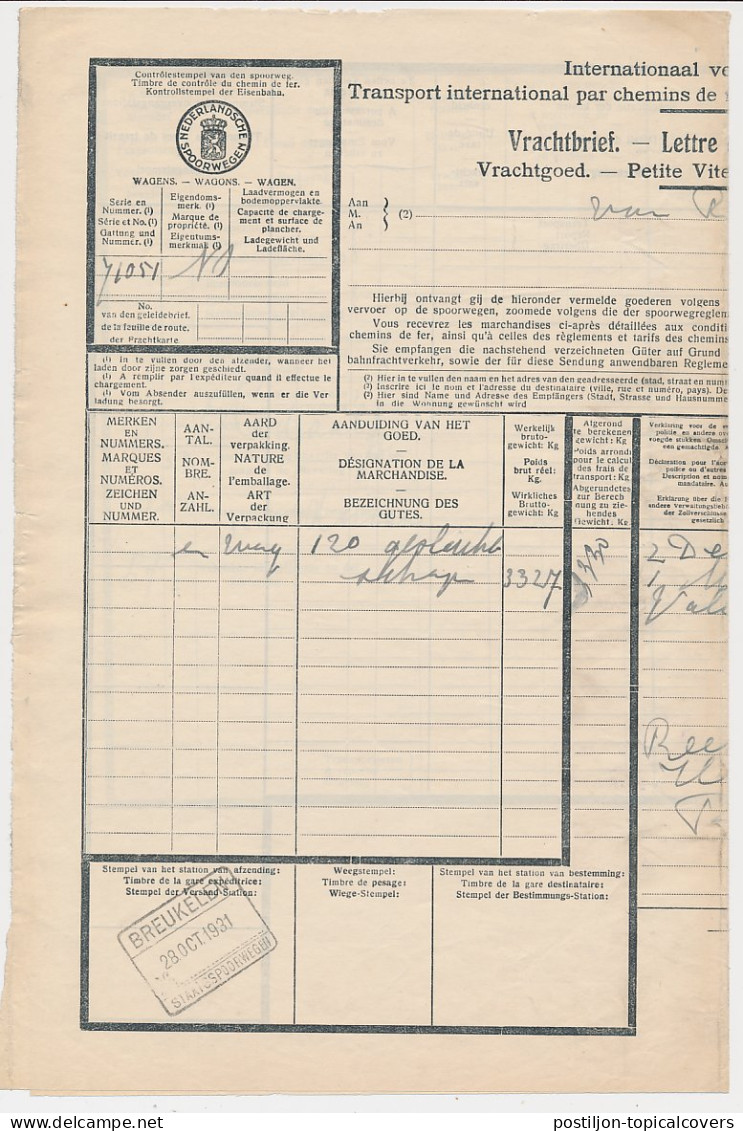 Contrôlestempel van den spoorweg.
Timbre de contrôle du chemin de fer.
Kontrollstempel der Eisenbahn.
NEDERLANDSCHE
SPOORWEGEN
WAGENS. — WAGONS. — WAGEN.
Serie en
Nummer. (¹)
Série et No. (¹)
Gattung und
Nummer. (¹)
Eigendoms-
merk. (¹)
Marque de
propriété. (¹)
Eigentums-
merkmal (¹)
Laadvermogen en
bodemoppervlakte.
Capacité de charge-
ment et surface de
plancher.
Ladegewicht und
Ladefläche.
71051 NS
No.
van den geleidebrief.
de la feuille de route.
der Frachtkarte
(¹) In te vullen door den afzender, wanneer het
laden door zijne zorgen geschiedt.
(¹) A remplir par l'expéditeur quand il effectue le
chargement.
(¹) Vom Absender auszufüllen, wenn er die Ver
ladung besorgt.
Internationaal ve
Transport international par chemins de
Vrachtbrief. — Lettre
Vrachtgoed. — Petite Vite
Aan
M.
An
(2)
van R
Hierbij ontvangt gij de hieronder vermelde goederen volgens
vervoer op de spoorwegen, zoomede volgens die der spoorwegreglem
Vous recevrez les marchandises ci-après détaillées aux conditi
chemins de fer, ainsi qu'à celles des règlements et tarifs des chemins
Sie empfangen die nachstehend verzeichneten Güter auf Grund
bahnfrachtverkehr, sowie der für diese Sendung anwendbaren Regleme
(²) Hier in te vullen den naam en het adres van den geadresseerde (stad, straat en num
(²) Inscrire ici le nom et l'adresse du destinataire (ville, rue et numéro, pays). De
(²) Hier sind Name und Adresse des Empfängers (Stadt, Strasse und Hausnumme
in die Wohnung gewünscht wird
MERKEN
EN
NUMMERS.
MARQUES
ET
NUMÉROS.
ZEICHEN
UND
NUMMER.
AAN-
TAL.
NOM-
BRE.
AN-
ZAHL.
AARD
der
verpakking.
NATURE
de
l'emballage.
ART
der
Verpackung
AANDUIDING VAN HET
GOED.
—
DÉSIGNATION DE LA
MARCHANDISE.
—
BEZEICHNUNG DES
GUTES.
Werkelijk
bruto-
gewicht: Kg
Poids
brut réel:
Kg.
Wirkliches
Brutto-
gewicht: Kg
Afgerond
te berekenen
gewicht: Kg
Poids arrondi
pour le calcul
des frais de
transport: Kg
Abgerundetes
zur Berech
nung zu zie-
hendes
Gewicht: Kg.
Verklaring voor de
politie en andere ov
voegde stukken Omsc
een gemachtigde.
Déclaration pour l'acc
police ou d'autres
Description et nom
mandataire. Au
Erklärung über die
andere Verwaltungsbehö
der Zollverschlüsse
gesetzlich
120 geslachte
schapen 3327 3330
2 De
1
Ree
Stempel van het station van afzending:
Timbre de la gare expéditrice:
Stempel der Versand-Station:
Weegstempel:
Timbre de pesage:
Wiege-Stempel:
Stempel van het station van bestemming:
Timbre de la gare destinataire:
Stempel der Bestimmungs-Station:
BREUKELEN
28.OCT.1931
STAATSSPOORWEGEN
postiljon-topicalcovers postiljon-topicalcovers